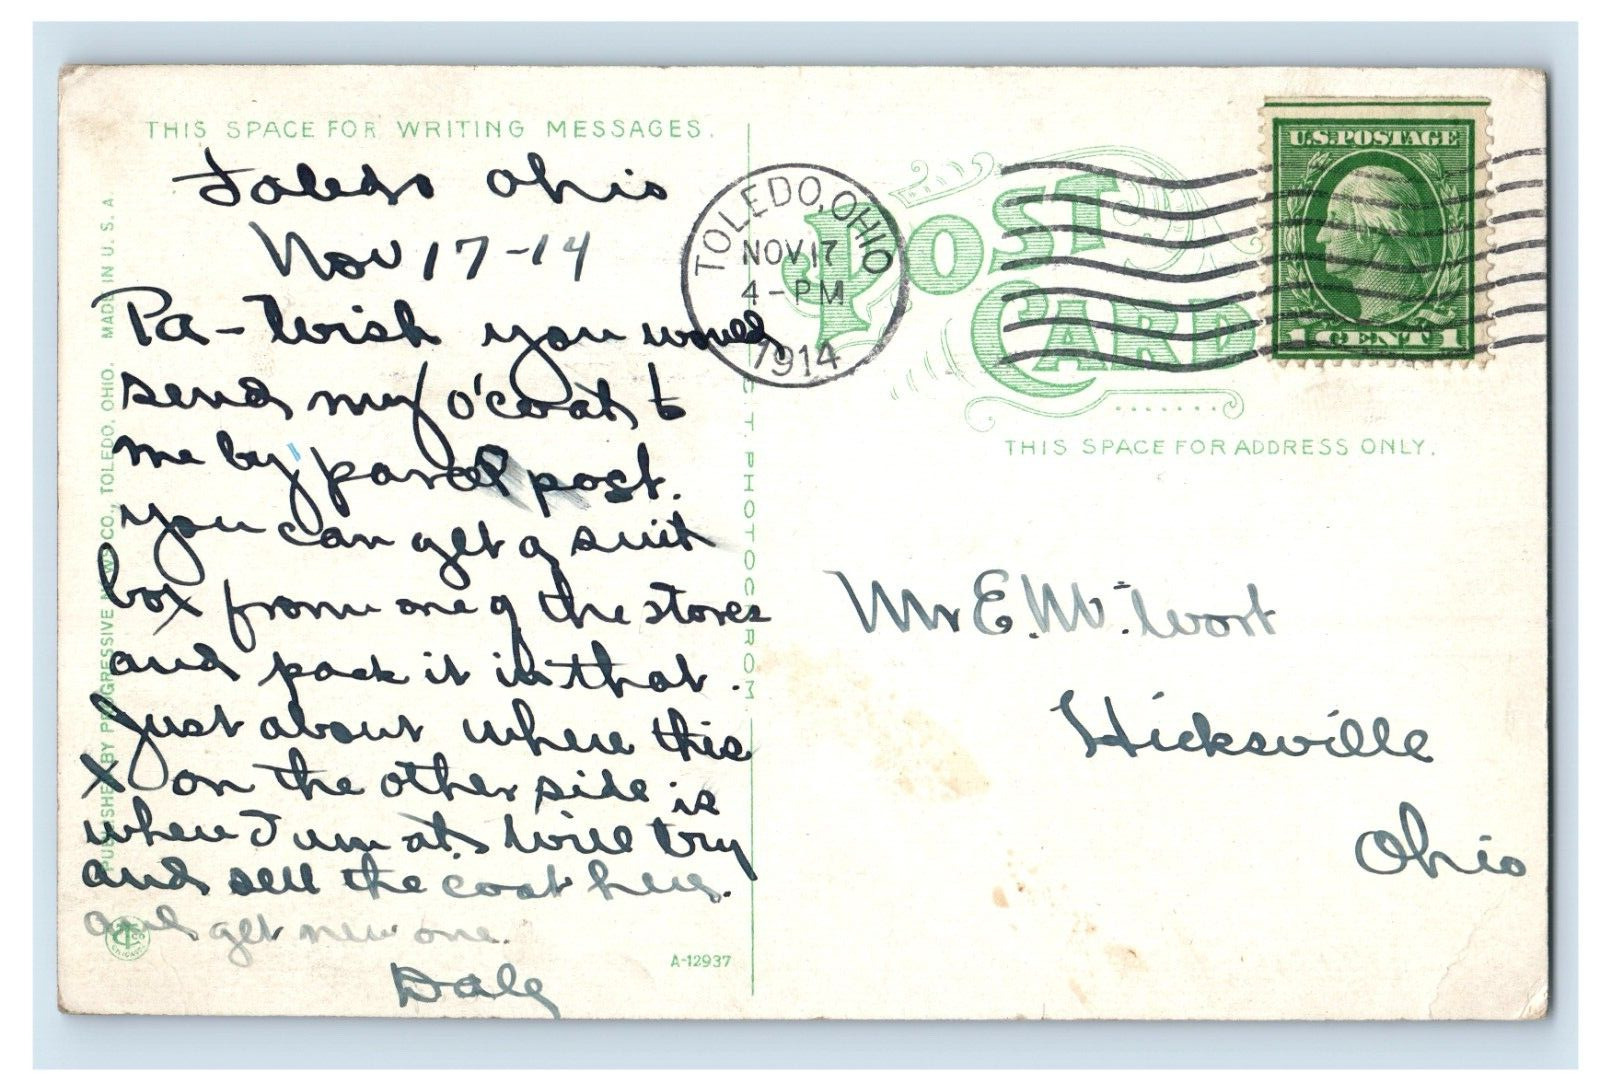 THIS SPACE FOR WRITING MESSAGES.
Toledo Ohio
Nov 17-14
Pa - Wish you would
send my o'coat to
me by parcel post.
You can get a suit
box from one of the stores
and pack it in that.
Just about where this
X on the other side is
where I am at. Will try
and sell the coat here.
and get new one.
Dale
PUBLISHED BY PROGRESSIVE NEWS CO., TOLEDO, OHIO. MADE IN U. S. A.
C.T. PHOTOCHROM
A-12937
CHICAGO
TOLEDO, OHIO
NOV 17
4-PM
1914
POST
CARD
U.S. POSTAGE
1 CENT 1
THIS SPACE FOR ADDRESS ONLY.
Mr E. W. Wort
Hicksville
Ohio